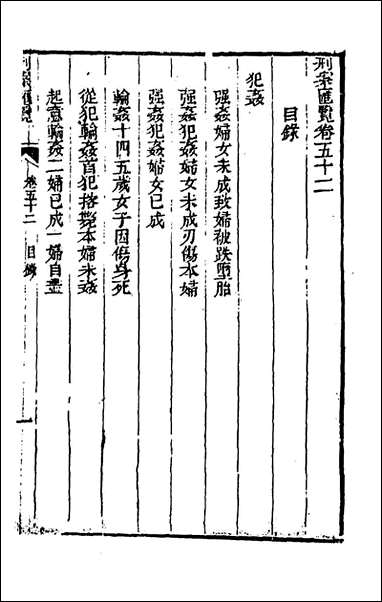 刑案匯覽卷五十二
目錄
犯姦
强姦婦女未成致婦被跌墮胎
强姦犯姦婦女未成刃傷本婦
强姦犯姦婦女已成
輪姦十四五歲女子因傷身死
從犯輪姦首犯揢斃本婦未姦
起意輪姦二婦已成一婦自盡
刑案匯覽
卷五十二 目錄
一